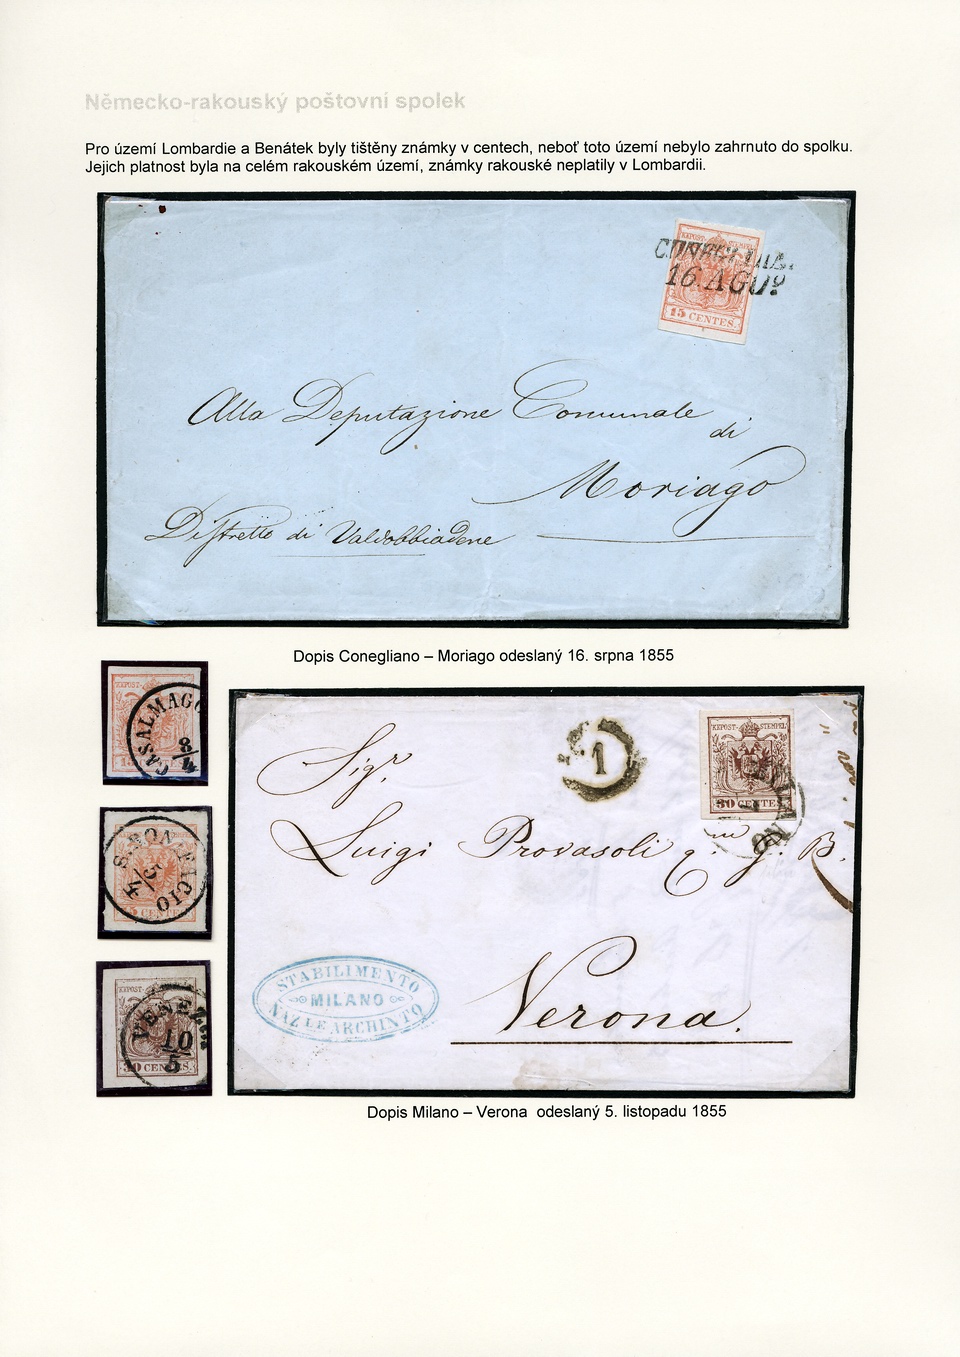 Německo-rakouský poštovní spolek
Pro území Lombardie a Benátek byly tištěny známky v centech, neboť toto území nebylo zahrnuto do spolku.
Jejich platnost byla na celém rakouském území, známky rakouské neplatily v Lombardii.
KKPOST-STEMPEL
16. AGO.
15 CENTES.
Alla Deputazione Comunale
di
Moriago
Distretto di Valdobbiadene
Dopis Conegliano – Moriago odeslaný 16. srpna 1855
KKPOST-
CASALMAGG
8/4
Sigr
1
KKPOST-STEMPEL
30 CENTES.
Luigi Provasoli q. G. B.
5/4
15 CENTES.
STABILIMENTO
MILANO
NAZLE ARCHINTO
Verona.
KKPOST-
VENEZ
10/5
30 CENTES.
Dopis Milano – Verona odeslaný 5. listopadu 1855